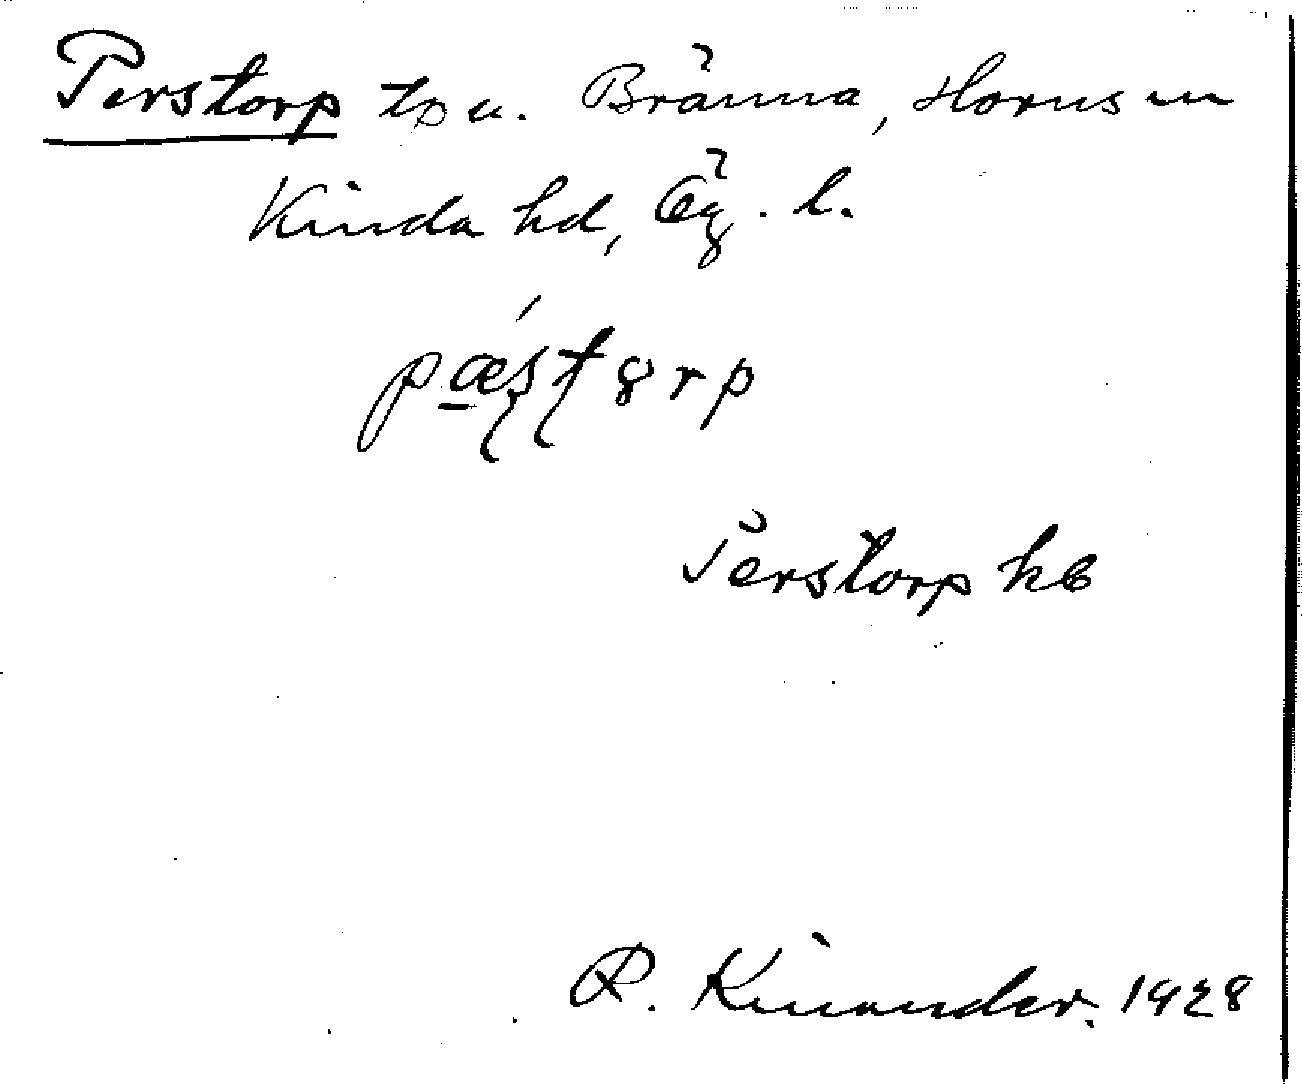 Perstorp tp u. Bränna, Horns sn
Kinda hd, Ög. l.
Perstorp hb
R. Kinander. 1928